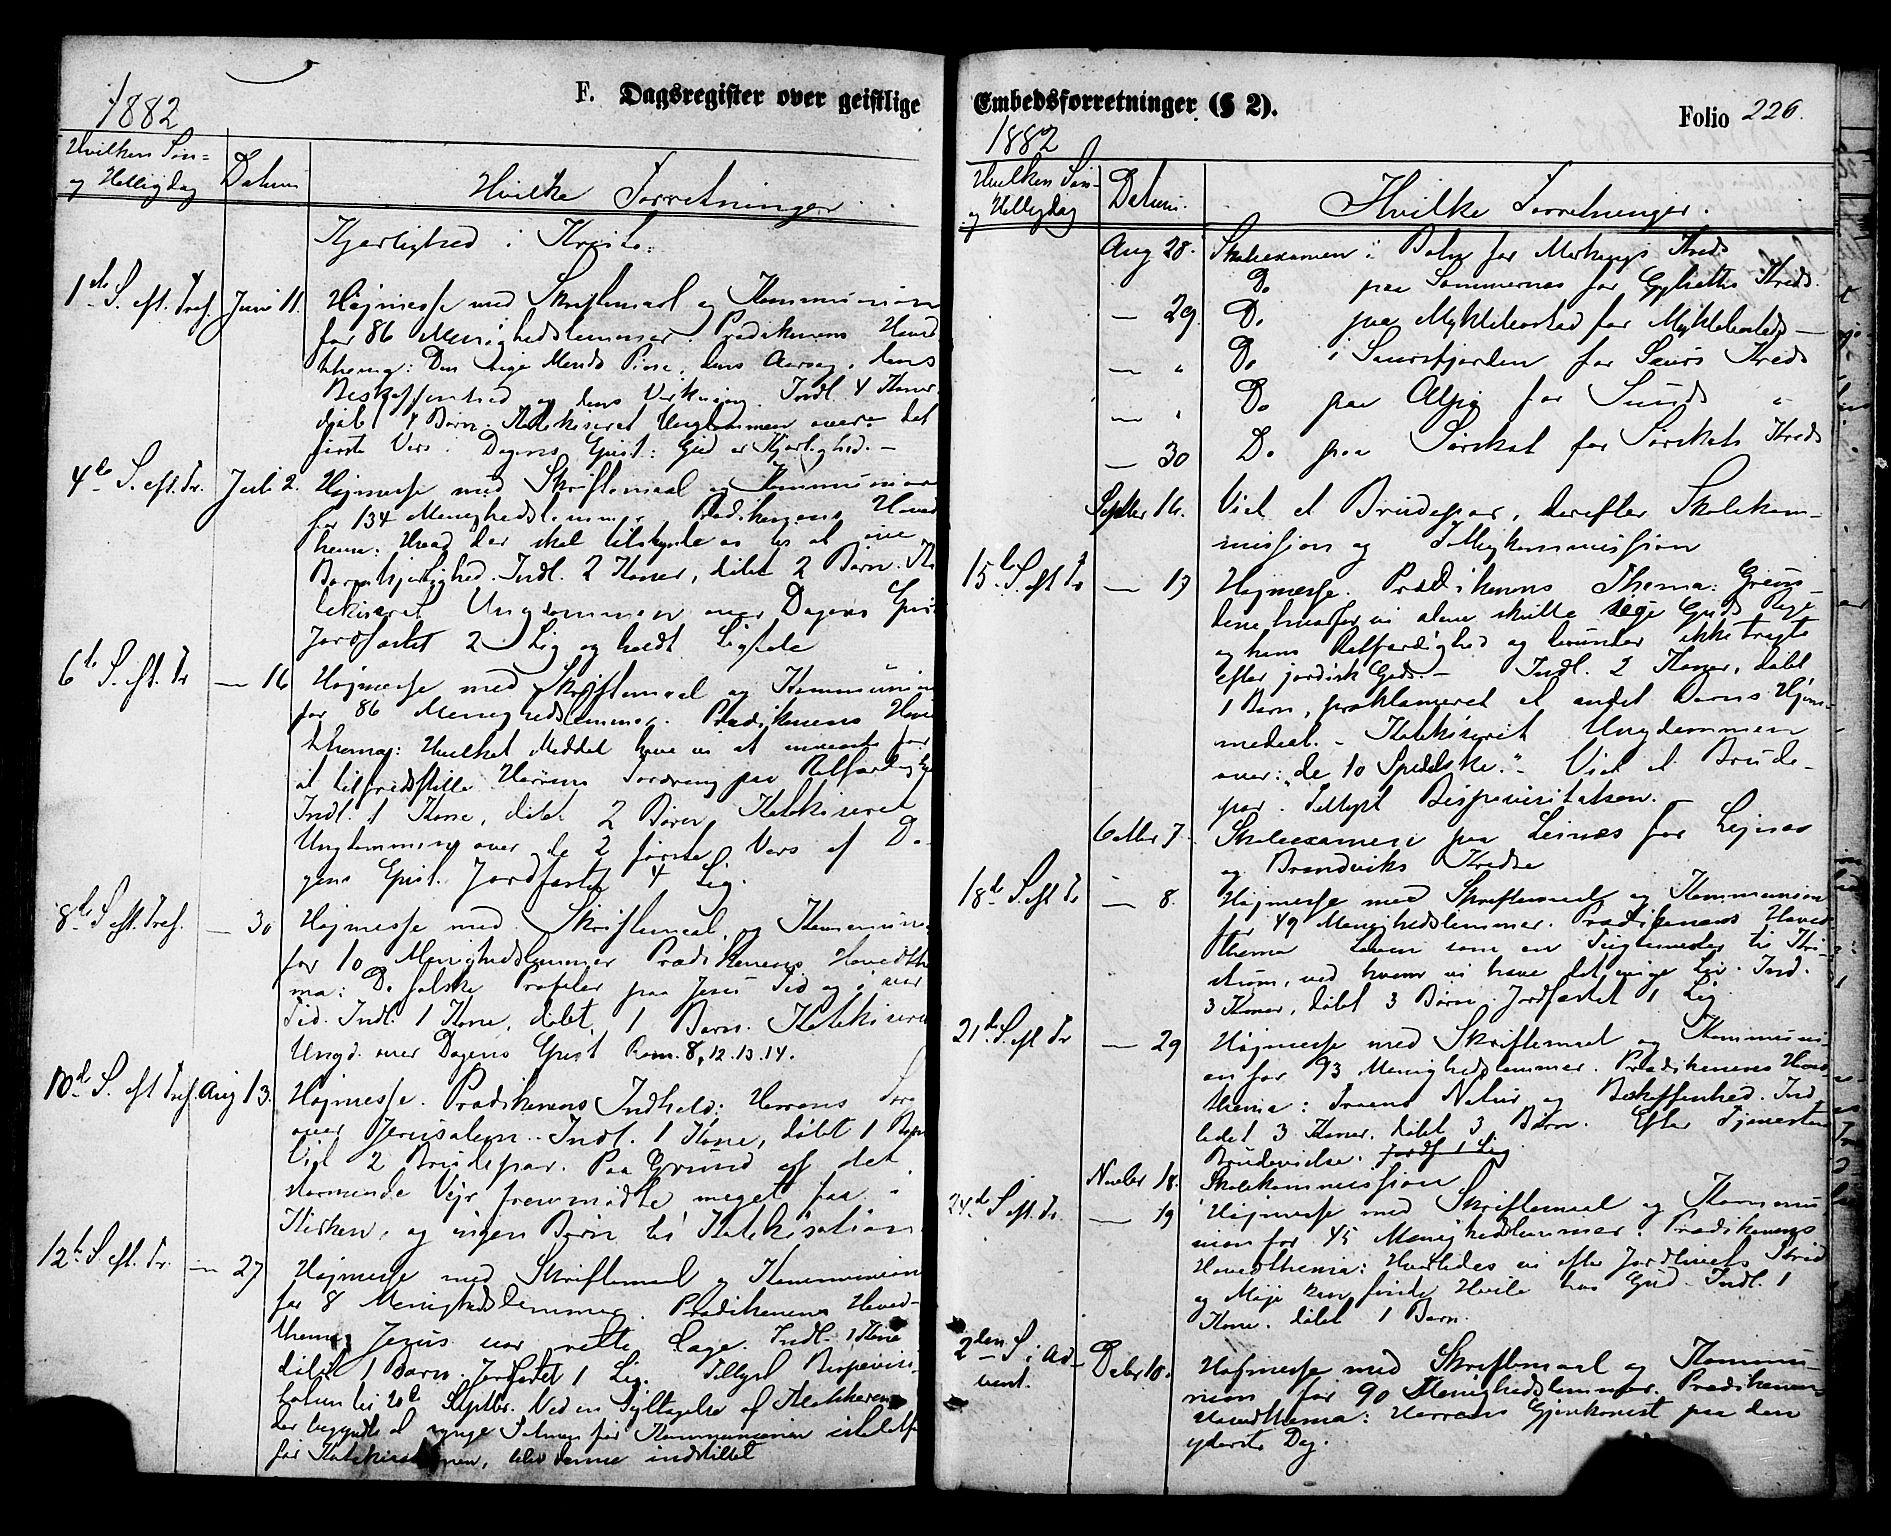 F. Dagsregister over geistlige
1882
Hvilken Søn=
og Helligdag
Datum
Hvilke Forretninger
Kjærlighed i Kristo.
1ste S. eft. Tref. Juni 11. Høimesse med Skriftemaal og Kommunion
for 86 Menighedslemmer. Prædikenens Hoved
thema: Den rige Mands Pine, dens Aarsag, dens
Beskaffenhed og dens Virkning. Indl. 4 Koner
døbt 4 Børn. Katekiseret Ungdommen over det
første Vers i Dagens Epist: Gud er Kjærlighed. –
4de S. eft. Tr. Juli 2. Høimesse med Skriftemaal og Kommunion
for 134 Menighedslemmer Prædikenens Hoved
thema: Hvad der skal tilskynde os til at øve
Barmhjertighed. Indl. 2 Koner, døbt 2 Børn. Ka
tekiseret Ungdommen over Dagens Epist
Jordfæstet 2 Lig og holdt Ligtale
6te S. eft. Tr — 16 Høimesse med Skriftemaal og Kommunion
for 86 Menighedslemmer. Prædikenens Hoved
thema: Hvilket Middel have vi at anvende for
at tilfredsstille Herrens Fordring paa Retfærdighed
Indl. 1 Kone, døbt 2 Børn Katekiseret
Ungdommen over de 2 første Vers af Da-
gens Epist. Jordfæstet 4 Lig.
8de S. eft. Tref. — 30 Høimesse med Skriftemaal og Kommunion
for 10 Menighedslemmer Prædikenens Hovedthe
ma: De falske Profeter paa Jesu Tid og i vor
Tid. Indl. 1 Kone, døbt 1 Barn. Katekiseret
Ungd. over Dagens Epist Rom. 8, 12. 13. 14.
10de S. eft Tref. Aug 13. Høimesse. Prædikenens Indhold: Herrens Sorg
over Jerusalem. Indl. 1 Kone, døbt 1 Barn
Viet 2 Brudepar. Paa Grund af det
stormende Vejr fremmødte meget faa i
Kirken, og ingen Børn til Katekisation
12te S. eft. Tr. — 27 Høimesse med Skriftemaal og Kommunion
for 8 Menighedslemmer. Prædikenens Hoved-
thema: Jesus vor rette Læge. Indl. 1 Kone
døbt 1 Barn. Jordfæstet 1 Lig. Tillyst Bispevisi-
tatsen til 20de Septbr. Ved en Iylltagelse af Klokkeren
der begyndte at synge Salmen før Kommunionen istedetfor
før Katekisationen, blev denne indstillet
Embedsforretninger (§ 2).
Folio 226.
1882
Hvilken Søn-
og Helligdag
Datum.
Hvilke Forretninger.
Aug 28. Skoleexamen i Boln for Mørkengs Kreds
Do paa Sommernæs for Kreds.
— 29 Do paa Myklebostad for Myklebostads —
— „ Do i Saursfjorden for Saurs Kreds
— „ Do paa Alpøg for Sunds „
— 30 Do paa Sørskot for Sørskots Kreds
Septbr 16. Viet et Brudepar, derefter Skolekom-
mission og Tilsynkommission
15de S. eft Tr — 17 Høimesse. Prædikenens Thema: Grun-
dene hvorfor vi alene skulle søge Guds Rige
og hans Retfærdighed og derunder ikke tragte
efter jordisk Gods. – Indl. 2 Koner, døbt
1 Barn, proklameret et andet Barns Hjem-
medaab. – Katekiseret Ungdommen
over: „de 10 Spedalske.“ – Viet et Brude-
par. Tillyst Bispevisitatsen.
Octbr 7. Skoleexamen paa Leines for Leines
og Brandviks Kredse
18de S. eft Tr — 8. Høimesse med Skriftemaal og Kommunion
for 49 Menighedslemmer. Prædikenens Hoved
thema Loven som en Tugtemester til Kri-
stum, ved hvem vi have det evige Liv. Ind.
3 Koner, døbt 3 Børn. Jordfæstet 1 Lig
21de S. eft Tr — 29 Høimesse med Skriftemaal og Kommuni-
on for 93 Menighedslemmer. Prædikenens Hoved-
thema: Troens Natur og Beskaffenhed. Ind
ledet 3 Koner, døbt 3 Børn. Efter Tjenesten
Brudevielse. Jordf. 1 Lig
Novbr 18. Skolekommission
24de S. eft. Tr. — 19 Høimesse med Skriftemaal og Kommu
nion for 45 Menighedslemmer. Prædikenens
Hovedthema: Hvorledes vi efter Jordlivets Strid
og Møie kan finde Hvile hos Gud. Indl. 1
Kone. døbt 1 Barn.
2den S. i Ad-
vent. Debr 10. Høimesse med Skriftemaal og Kommu-
nion for 90 Menighedslemmer. Prædikenens
Hovedthema: Herrens Gjenkomst paa den
yderste Dag.